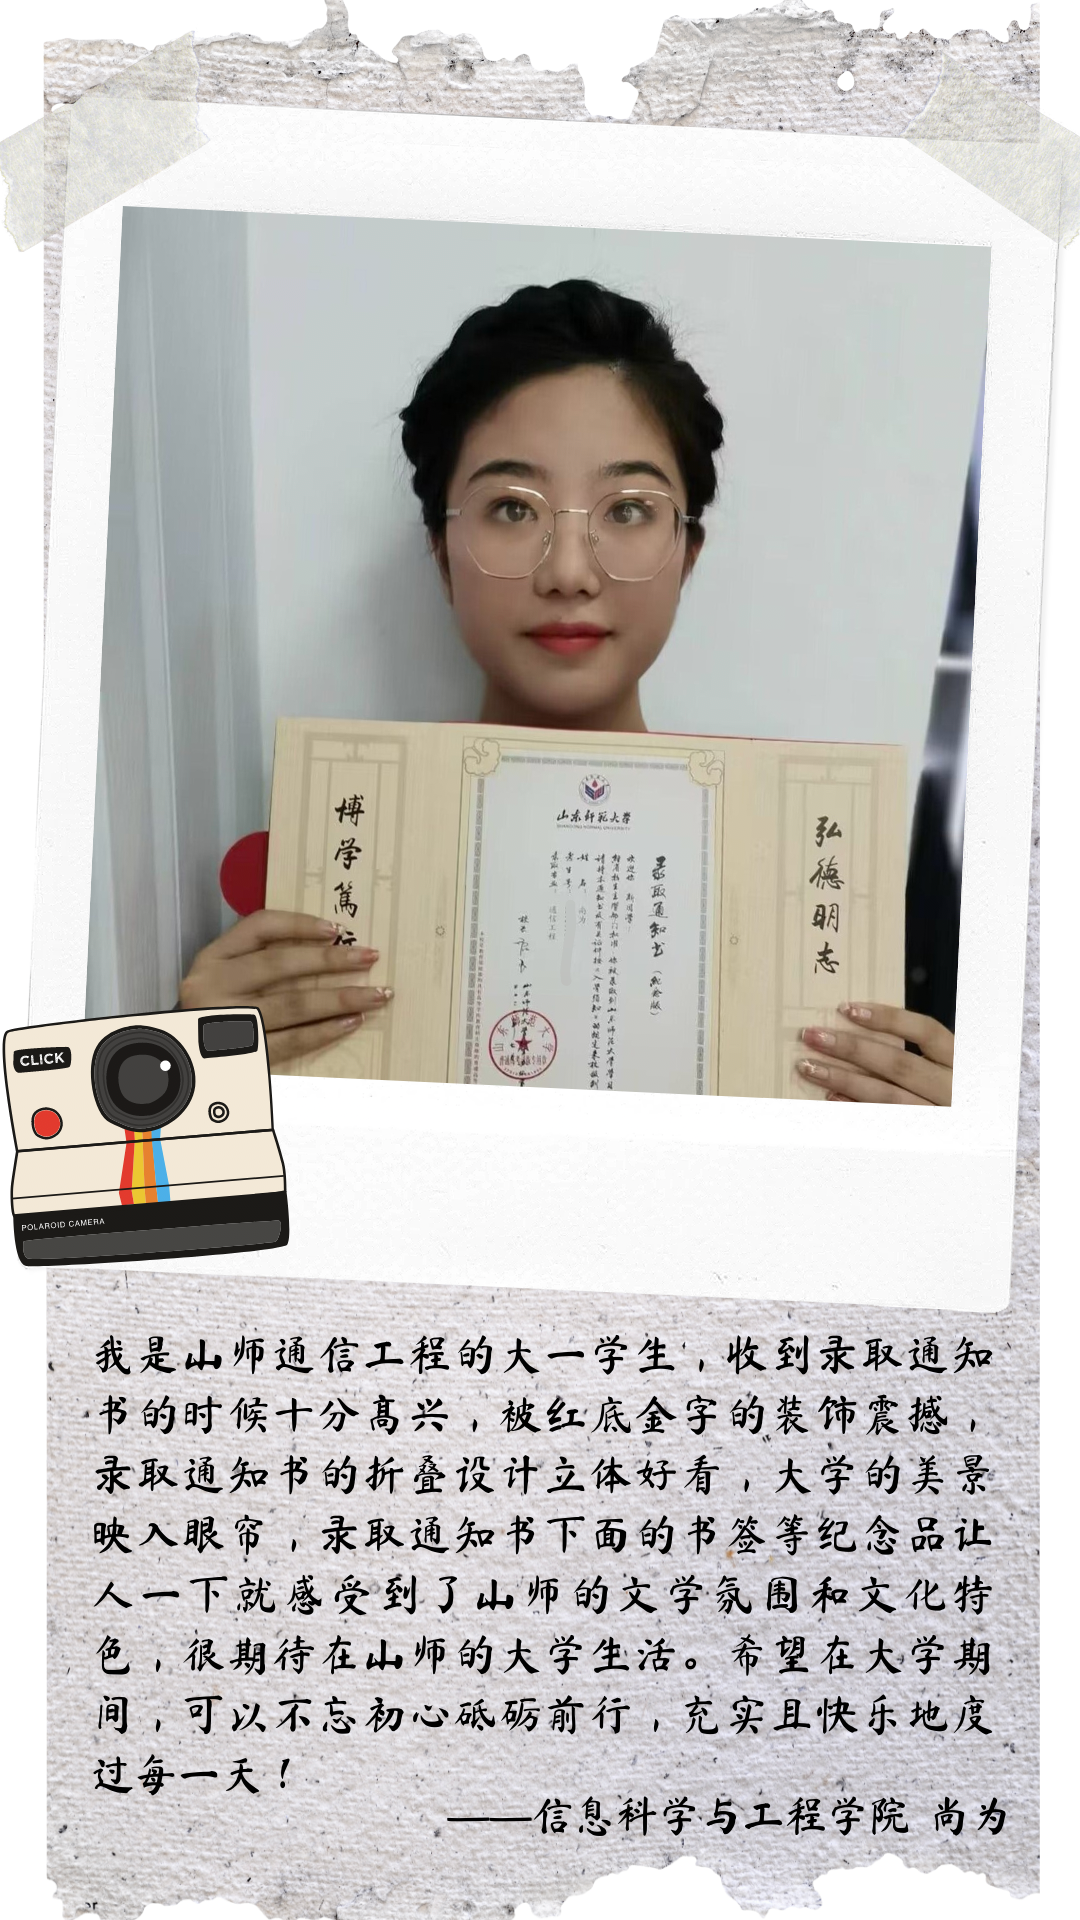 山东师范大学
SHANDONG NORMAL UNIVERSITY
博学笃行
弘德明志
录取通知书
(纪念版)
姓名：尚为
考生号：
录取专业：通信工程
校长
CLICK
POLAROID CAMERA
我是山师通信工程的大一学生，收到录取通知
书的时候十分高兴，被红底金字的装饰震撼，
录取通知书的折叠设计立体好看，大学的美景
映入眼帘，录取通知书下面的书签等纪念品让
人一下就感受到了山师的文学氛围和文化特
色，很期待在山师的大学生活。希望在大学期
间，可以不忘初心砥砺前行，充实且快乐地度
过每一天！
——信息科学与工程学院 尚为